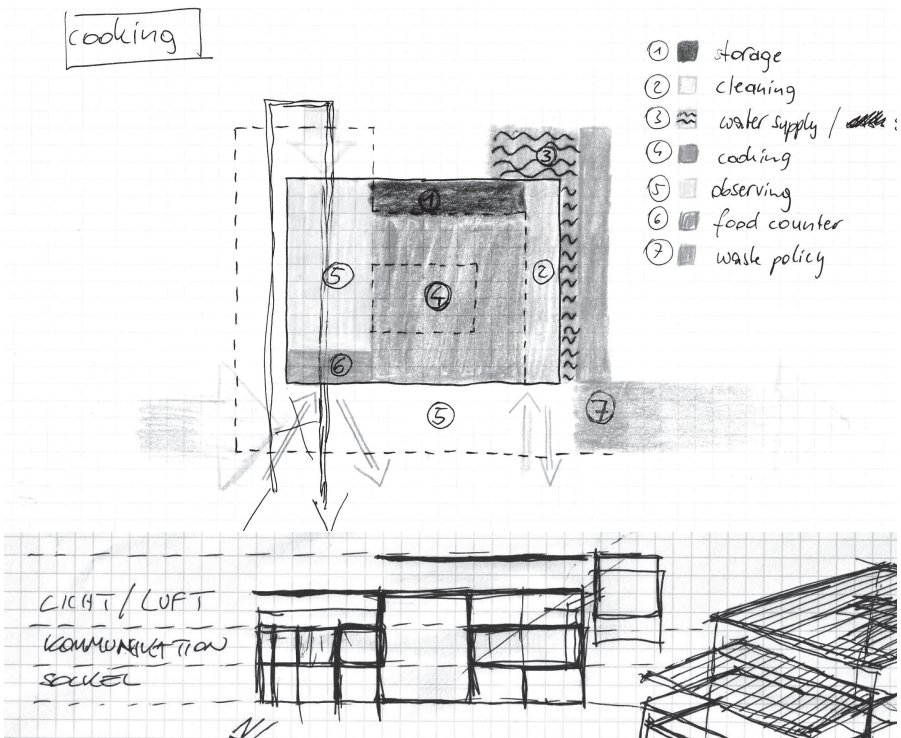 cooking
① storage
② cleaning
③ water supply /
④ cooking
⑤ observing
⑥ food counter
⑦ waste policy
③
①
⑤
②
④
⑥
⑤
⑦
LICHT / LUFT
KOMMUNIKATION
SOCKEL